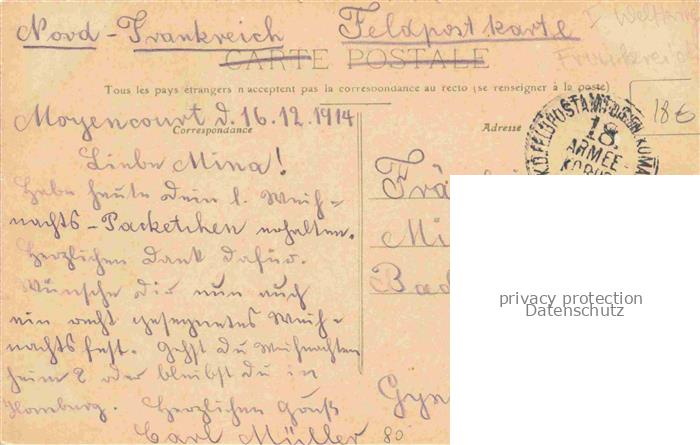 Nord - Frankreich Feldpostkarte
I Weltkrieg
Frankreich
CARTE POSTALE
Tous les pays étrangers n'acceptent pas la correspondance au recto (se renseigner à la poste)
18 €
Moyencourt d. 16.12.1914
Correspondance
Adresse
K.D. FELDPOSTAM
18.
ARMEE-
KORPS
Liebe Mina!
Habe heute Dein l. Weih-
nachts-Packetchen erhalten.
Herzlichen Dank dafür.
Wünsche Dir nun auch
ein recht gesegnetes Weih-
nachtsfest. Gehst Du Weihnachten
heim? oder bleibst Du in
Homburg. Herzlichen Gruß
Carl Müller
80
Frä
Mi
Bad
Gym
privacy protection
Datenschutz